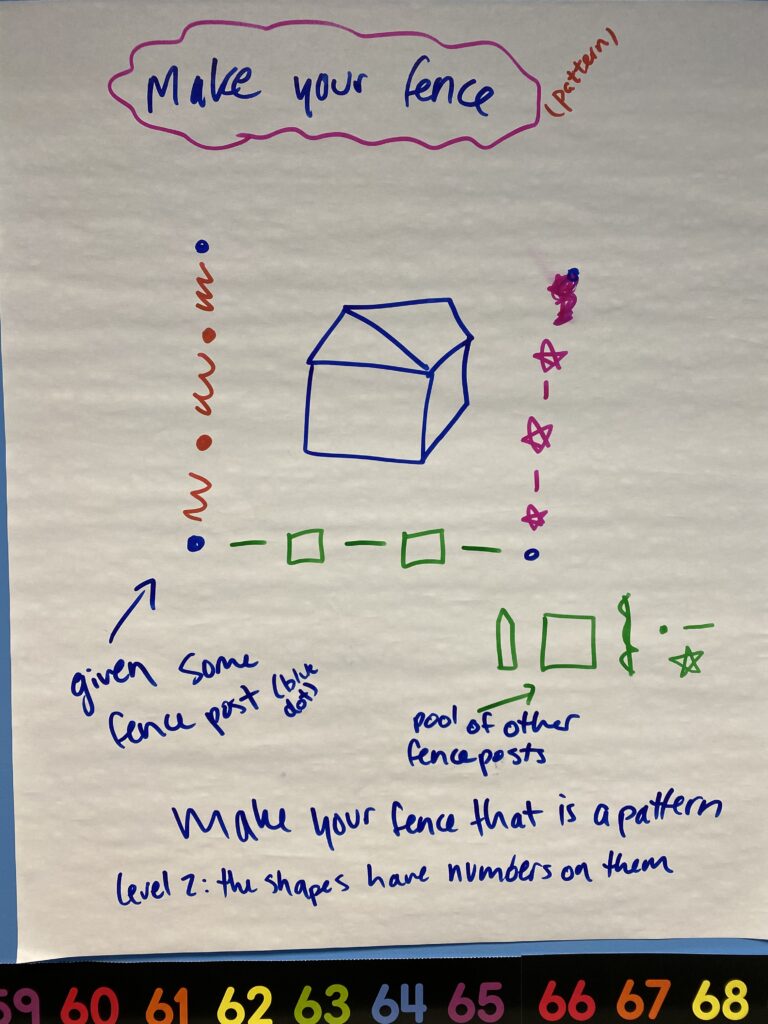 Make your fence
(pattern)
given some
fence post (blue
dot)
pool of other
fenceposts
Make your fence that is a pattern
Level 2: the shapes have numbers on them
59 60 61 62 63 64 65 66 67 68